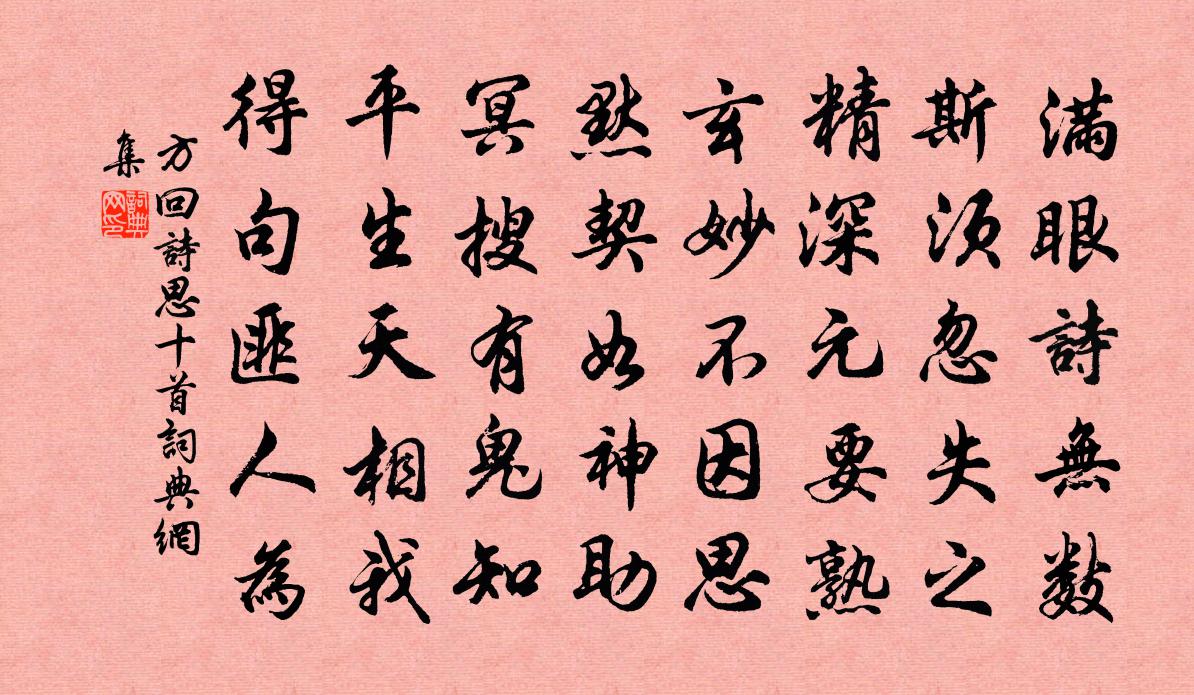 滿眼詩無數
斯須忽失之
精深元要熟
玄妙不因思
默契如神助
冥搜有鬼知
平生天相我
得句匪人為
方回詩思十首詞典網
集
詞典
网印